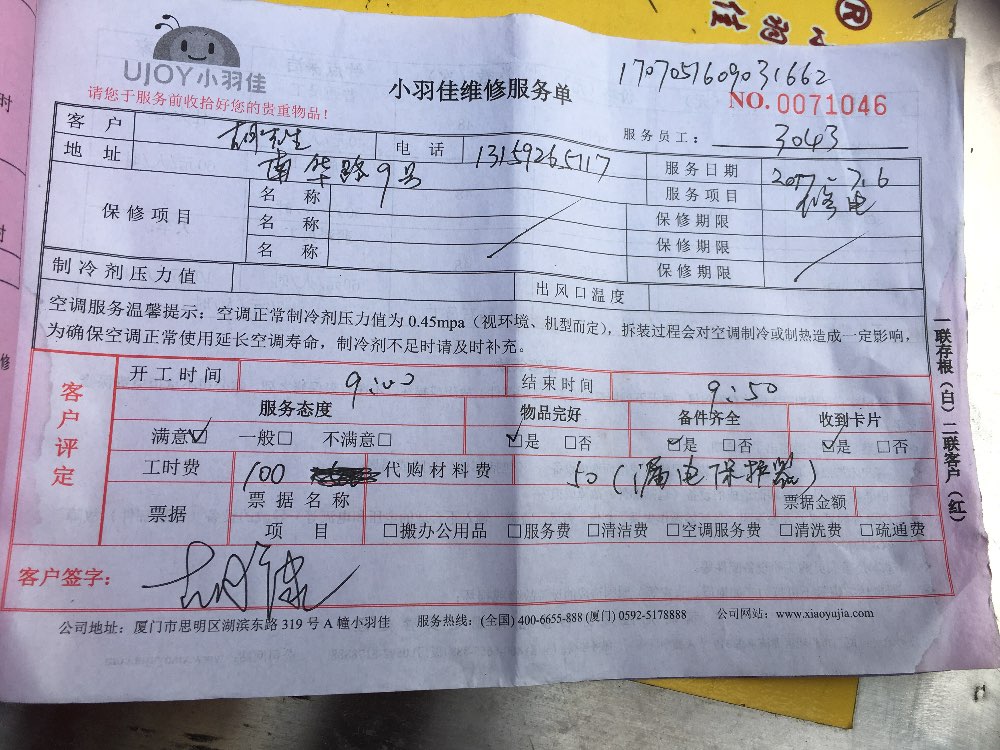 UJOY小羽佳
小羽佳维修服务单
1707051609031662
请您于服务前收拾好您的贵重物品！
NO. 0071046
服务员工： 3043
客 户 胡先生 电 话 13159265117 服务日期 2017-7.6
地 址 南华路9号 服务项目 修电
保修项目 名 称 保修期限
名 称 保修期限
名 称 保修期限
制冷剂压力值 出风口温度
空调服务温馨提示：空调正常制冷剂压力值为 0.45mpa（视环境、机型而定），拆装过程会对空调制冷或制热造成一定影响，
为确保空调正常使用延长空调寿命，制冷剂不足时请及时补充。
客户评定
开工时间 9:00 结束时间 9:50
服务态度 物品完好 备件齐全 收到卡片
满意☑ 一般□ 不满意□ ☑是 □否 ☑是 □否 ☑是 □否
工时费 100 代购材料费 50（漏电保护器）
票据 票据名称 票据金额
项 目 □搬办公用品 □服务费 □清洁费 □空调服务费 □清洗费 □疏通费
客户签字：
公司地址：厦门市思明区湖滨东路 319 号 A 幢小羽佳 服务热线：(全国) 400-6655-888 (厦门) 0592-5178888 公司网站：www.xiaoyujia.com
一联存根（白）二联客户（红）